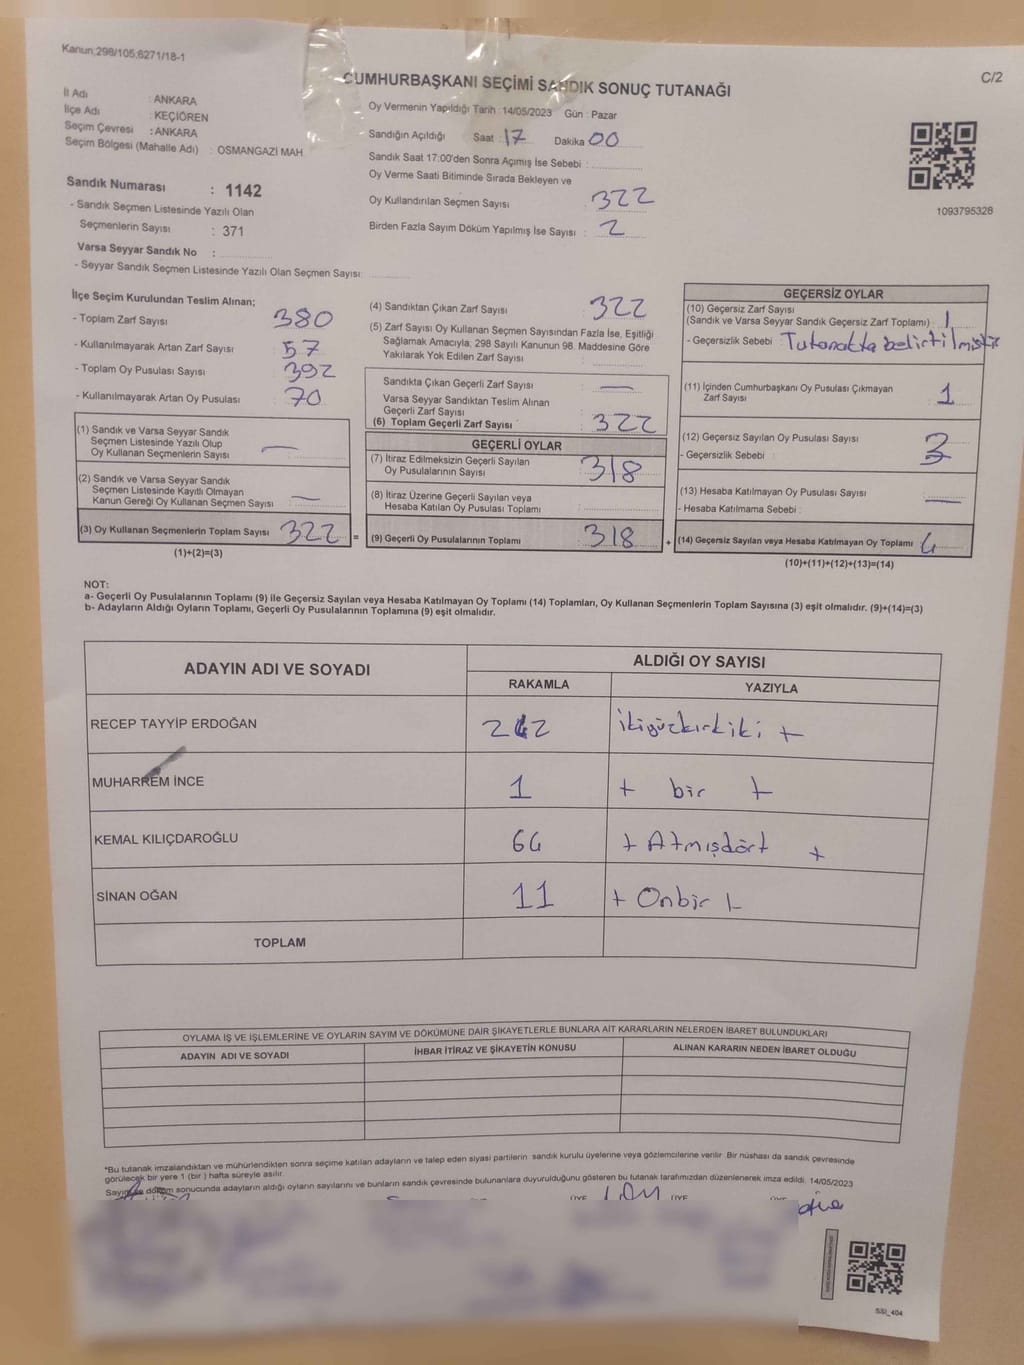 Kanun:298/105,6271/18-1
C/2
CUMHURBAŞKANI SEÇİMİ SANDIK SONUÇ TUTANAĞI
İl Adı : ANKARA
İlçe Adı : KEÇİÖREN
Seçim Çevresi : ANKARA
Seçim Bölgesi (Mahalle Adı) : OSMANGAZİ MAH
Sandık Numarası : 1142
- Sandık Seçmen Listesinde Yazılı Olan
Seçmenlerin Sayısı : 371
Varsa Seyyar Sandık No :
- Seyyar Sandık Seçmen Listesinde Yazılı Olan Seçmen Sayısı:
Oy Vermenin Yapıldığı Tarih : 14/05/2023 Gün : Pazar
Sandığın Açıldığı Saat : 17 Dakika 00
Sandık Saat 17:00'den Sonra Açımış İse Sebebi :
Oy Verme Saati Bitiminde Sırada Bekleyen ve
Oy Kullandırılan Seçmen Sayısı : 322
Birden Fazla Sayım Döküm Yapılmış İse Sayısı : 2
1093795328
İlçe Seçim Kurulundan Teslim Alınan;
- Toplam Zarf Sayısı 380
- Kullanılmayarak Artan Zarf Sayısı : 57
- Toplam Oy Pusulası Sayısı : 392
- Kullanılmayarak Artan Oy Pusulası : 70
(1) Sandık ve Varsa Seyyar Sandık
Seçmen Listesinde Yazılı Olup
Oy Kullanan Seçmenlerin Sayısı : —
(2) Sandık ve Varsa Seyyar Sandık
Seçmen Listesinde Kayıtlı Olmayan
Kanun Gereği Oy Kullanan Seçmen Sayısı : —
(3) Oy Kullanan Seçmenlerin Toplam Sayısı : 322 =
(1)+(2)=(3)
(4) Sandıktan Çıkan Zarf Sayısı : 322
(5) Zarf Sayısı Oy Kullanan Seçmen Sayısından Fazla İse, Eşitliği
Sağlamak Amacıyla, 298 Sayılı Kanunun 98. Maddesine Göre
Yakılarak Yok Edilen Zarf Sayısı :
Sandıkta Çıkan Geçerli Zarf Sayısı : —
Varsa Seyyar Sandıktan Teslim Alınan
Geçerli Zarf Sayısı :
(6) Toplam Geçerli Zarf Sayısı : 322
GEÇERLİ OYLAR
(7) İtiraz Edilmeksizin Geçerli Sayılan
Oy Pusulalarının Sayısı : 318
(8) İtiraz Üzerine Geçerli Sayılan veya
Hesaba Katılan Oy Pusulası Toplamı :
(9) Geçerli Oy Pusulalarının Toplamı : 318 +
GEÇERSİZ OYLAR
(10) Geçersiz Zarf Sayısı
(Sandık ve Varsa Seyyar Sandık Geçersiz Zarf Toplamı) : 1
- Geçersizlik Sebebi : Tutanakta belirtilmiştir
(11) İçinden Cumhurbaşkanı Oy Pusulası Çıkmayan
Zarf Sayısı : 1
(12) Geçersiz Sayılan Oy Pusulası Sayısı :
- Geçersizlik Sebebi :
(13) Hesaba Katılmayan Oy Pusulası Sayısı : —
- Hesaba Katılmama Sebebi :
(14) Geçersiz Sayılan veya Hesaba Katılmayan Oy Toplamı : 4
(10)+(11)+(12)+(13)=(14)
NOT:
a- Geçerli Oy Pusulalarının Toplamı (9) ile Geçersiz Sayılan veya Hesaba Katılmayan Oy Toplamı (14) Toplamları, Oy Kullanan Seçmenlerin Toplam Sayısına (3) eşit olmalıdır. (9)+(14)=(3)
b- Adayların Aldığı Oyların Toplamı, Geçerli Oy Pusulalarının Toplamına (9) eşit olmalıdır.
ADAYIN ADI VE SOYADI ALDIĞI OY SAYISI
RAKAMLA YAZIYLA
RECEP TAYYİP ERDOĞAN 242 ikiyüzkırkiki +
MUHARREM İNCE 1 + bir +
KEMAL KILIÇDAROĞLU 64 + Atmışdört +
SİNAN OĞAN 11 + Onbir +
TOPLAM
OYLAMA İŞ VE İŞLEMLERİNE VE OYLARIN SAYIM VE DÖKÜMÜNE DAİR ŞİKAYETLERLE BUNLARA AİT KARARLARIN NELERDEN İBARET BULUNDUKLARI
ADAYIN ADI VE SOYADI İHBAR İTİRAZ VE ŞİKAYETİN KONUSU ALINAN KARARIN NEDEN İBARET OLDUĞU
*Bu tutanak imzalandıktan ve mühürlendikten sonra seçime katılan adayların ve talep eden siyasi partilerin sandık kurulu üyelerine veya gözlemcilerine verilir. Bir nüshası da sandık çevresinde
görülecek bir yere 1 (bir ) hafta süreyle asılır.
Sayım ve döküm sonucunda adayların aldığı oyların sayılarını ve bunların sandık çevresinde bulunanlara duyurulduğunu gösteren bu tutanak tarafımızdan düzenlenerek imza edildi. 14/05/2023
ÜYE ÜYE
SSİ_404